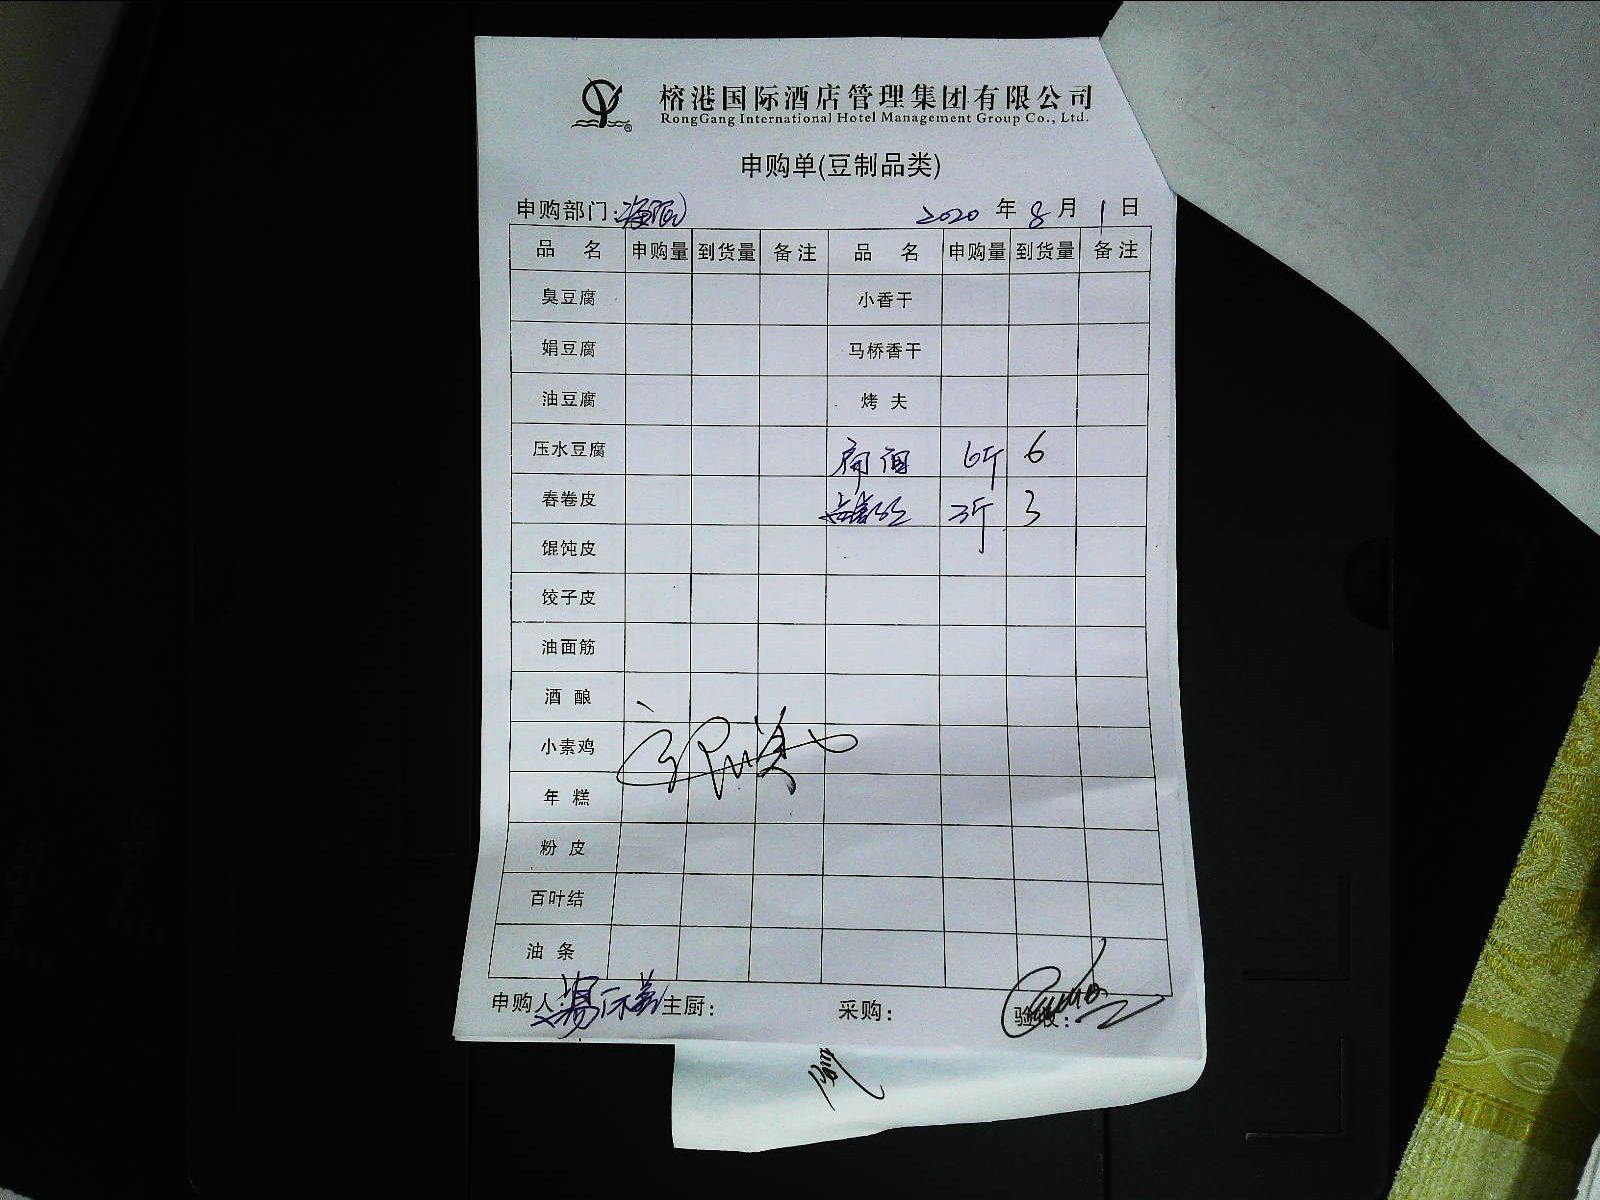 榕港国际酒店管理集团有限公司
RongGang International Hotel Management Group Co., Ltd.
申购单(豆制品类)
申购部门: 2020 年 8 月 1 日
品 名 申购量 到货量 备注 品 名 申购量 到货量 备注
臭豆腐 小香干
娟豆腐 马桥香干
油豆腐 烤 夫
压水豆腐 6斤 6
春卷皮 3斤 3
馄饨皮
饺子皮
油面筋
酒 酿
小素鸡
年 糕
粉 皮
百叶结
油 条
申购人: 主厨: 采购: 验收: